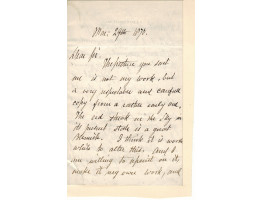 Mar: 29th 1870.
Dear Sir.
The picture you sent
me is not my work, but
a very reputable and careful
copy from a rather early one.
The red streak in the sky in
its present state is a great
blemish. I think it is worth
while to alter this. And I
am willing to repaint on it,
make it my own work, and